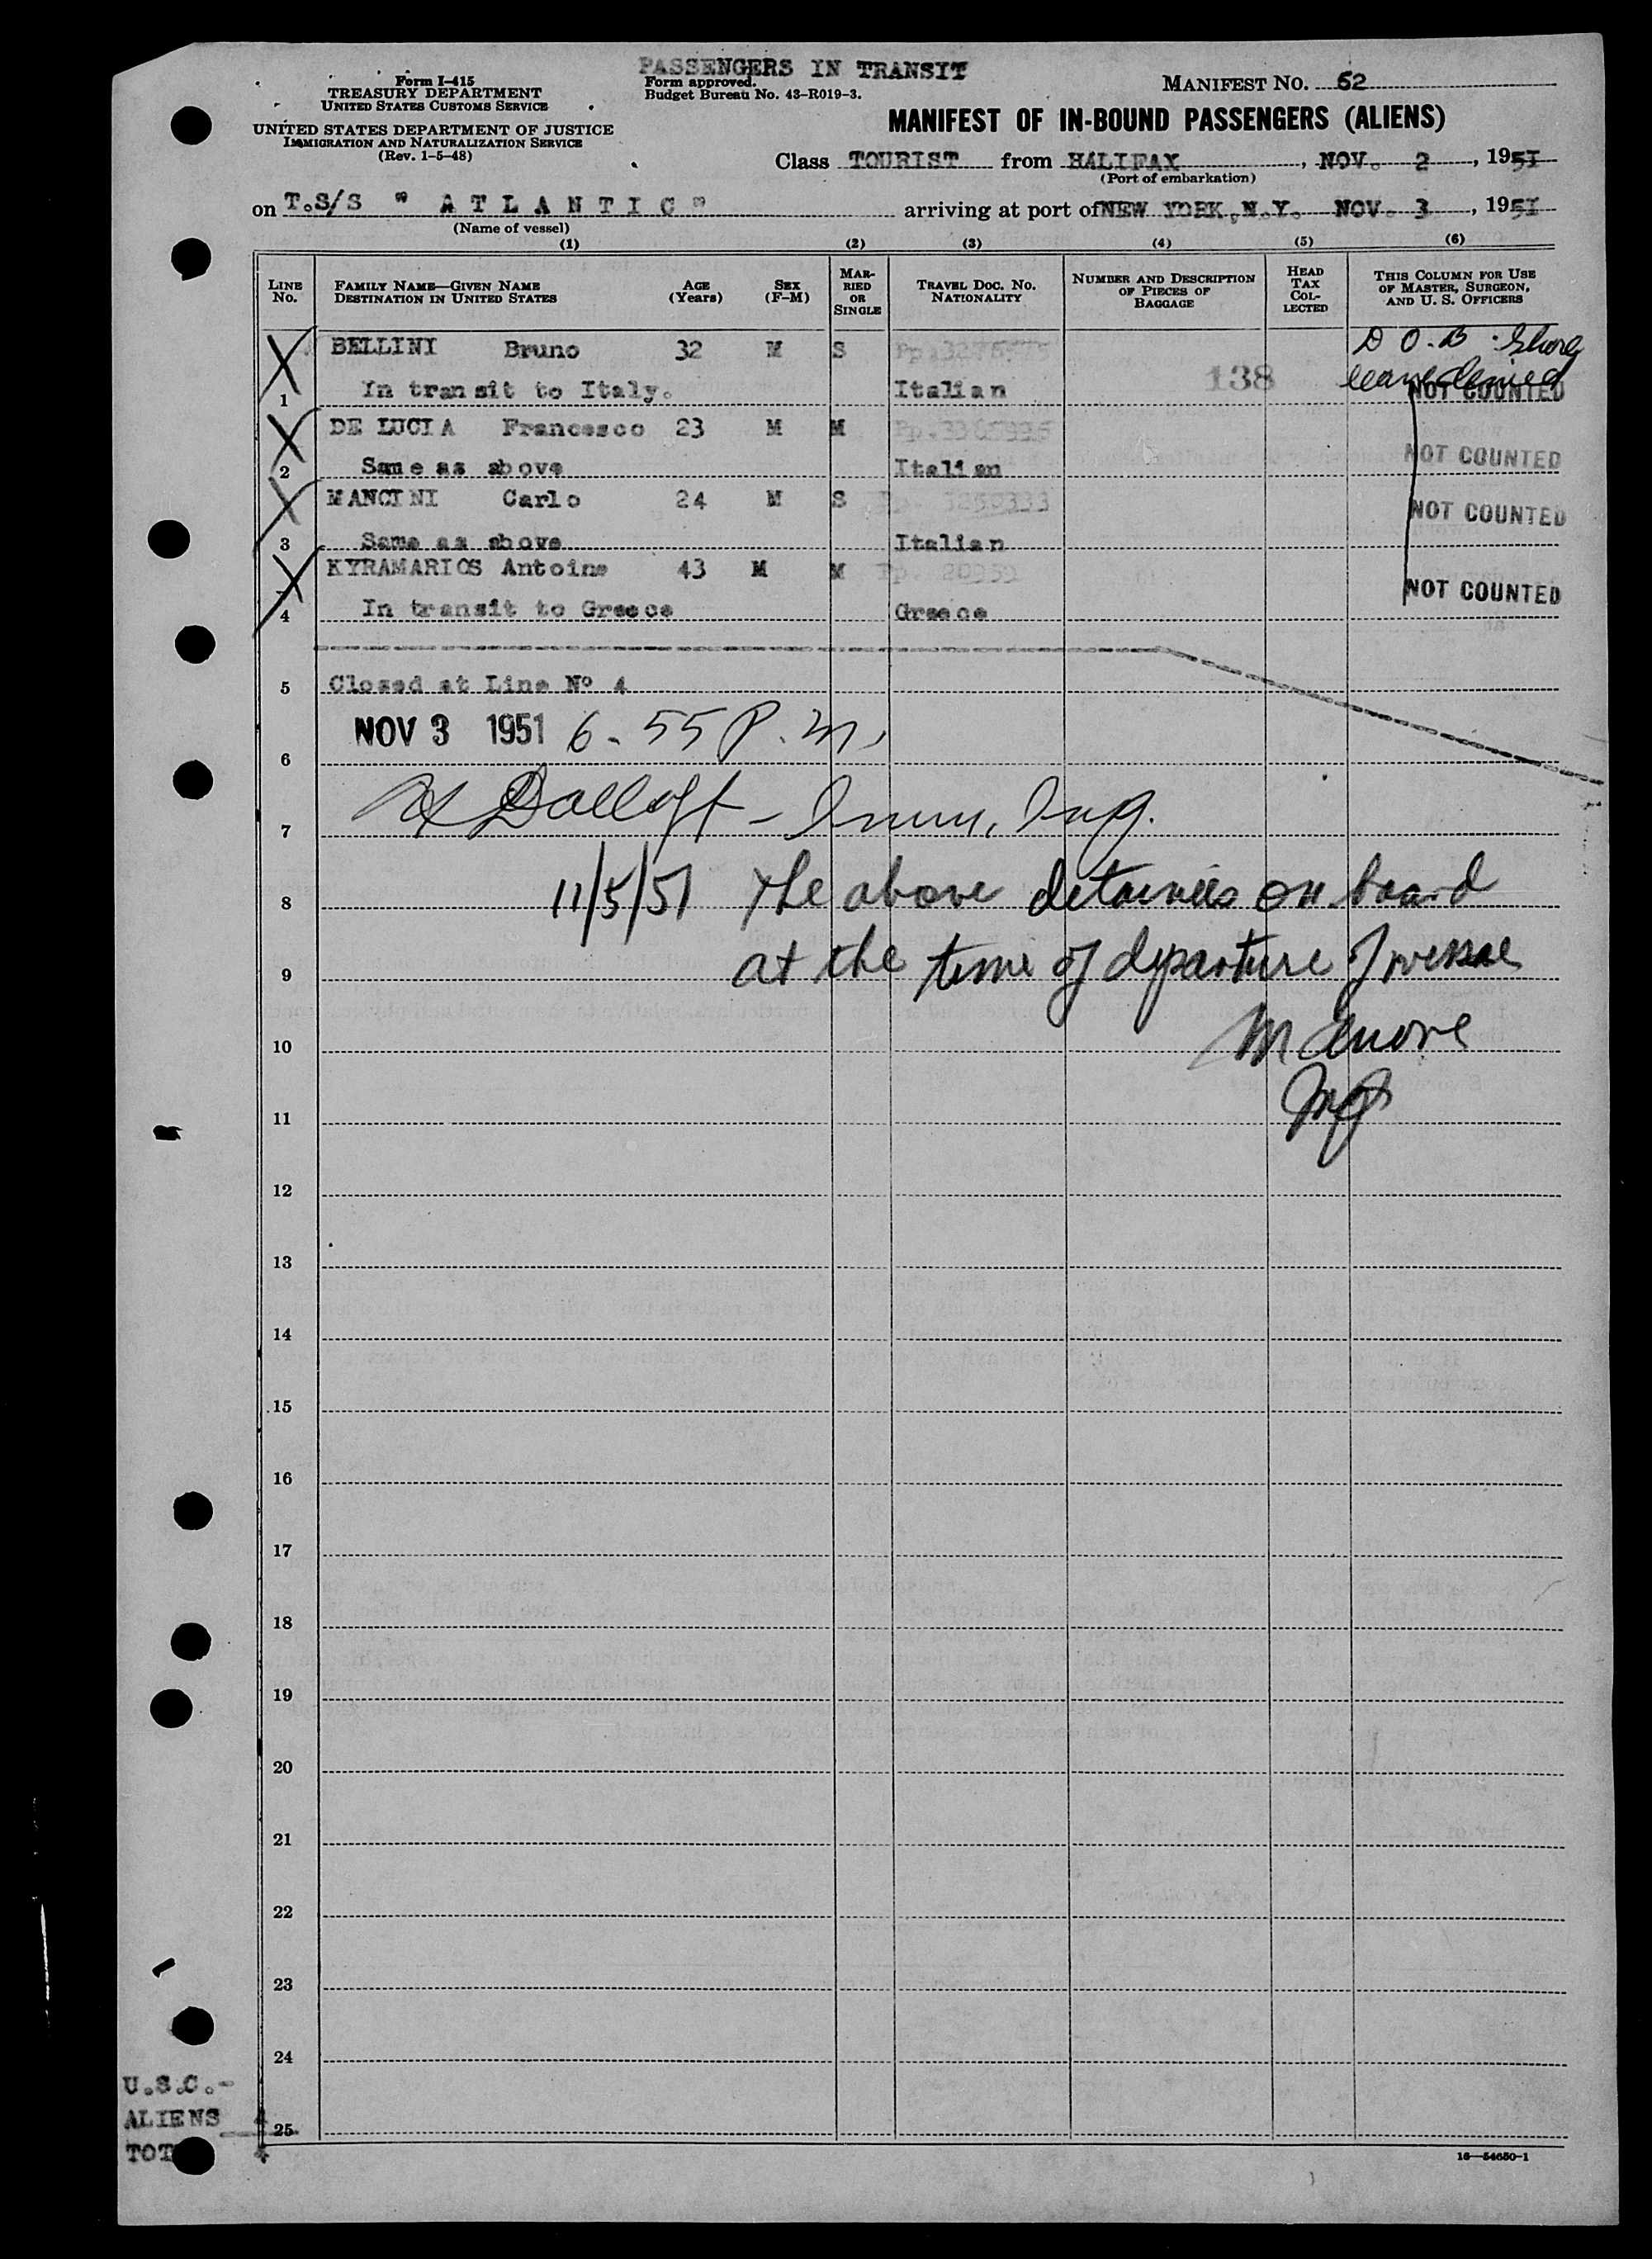 PASSENGERS IN TRANSIT
Form I-415
TREASURY DEPARTMENT
UNITED STATES CUSTOMS SERVICE
UNITED STATES DEPARTMENT OF JUSTICE
IMMIGRATION AND NATURALIZATION SERVICE
(Rev. 1-5-48)
Form approved.
Budget Bureau No. 43-R019-3.
MANIFEST NO. 62
MANIFEST OF IN-BOUND PASSENGERS (ALIENS)
Class TOURIST from HALIFAX, NOV. 2, 1951
(Port of embarkation)
on T.S/S "ATLANTIC" arriving at port of NEW YORK, N.Y. NOV. 3, 1951
(Name of vessel)
(1) (2) (3) (4) (5) (6)
LINE No. FAMILY NAME—GIVEN NAME DESTINATION IN UNITED STATES AGE (Years) SEX (F-M) MARRIED OR SINGLE TRAVEL DOC. NO. NATIONALITY NUMBER AND DESCRIPTION OF PIECES OF BAGGAGE HEAD TAX COLLECTED THIS COLUMN FOR USE OF MASTER, SURGEON, AND U. S. OFFICERS
BELLINI Bruno 32 M S Pp. D O.B. Shore
1 In transit to Italy. Italian 138 leave denied NOT COUNTED
DE LUCIA Francesco 23 M M Pp.
2 Same as above Italian NOT COUNTED
MANCINI Carlo 24 M S Pp.
3 Same as above Italian NOT COUNTED
KYRAMARIOS Antoine 43 M M Pp. 20959
4 In transit to Greece Greece NOT COUNTED
5 Closed at Line Nº 4
6 NOV 3 1951 6-55 P.M.
7 Imm. Insp.
8 11/5/51 The above detainees on board
9 at the time of departure of vessel
10
11
12
13
14
15
16
17
18
19
20
21
22
23
24
25
U.S.C.-
ALIENS 4
TOT 4
16—54650-1